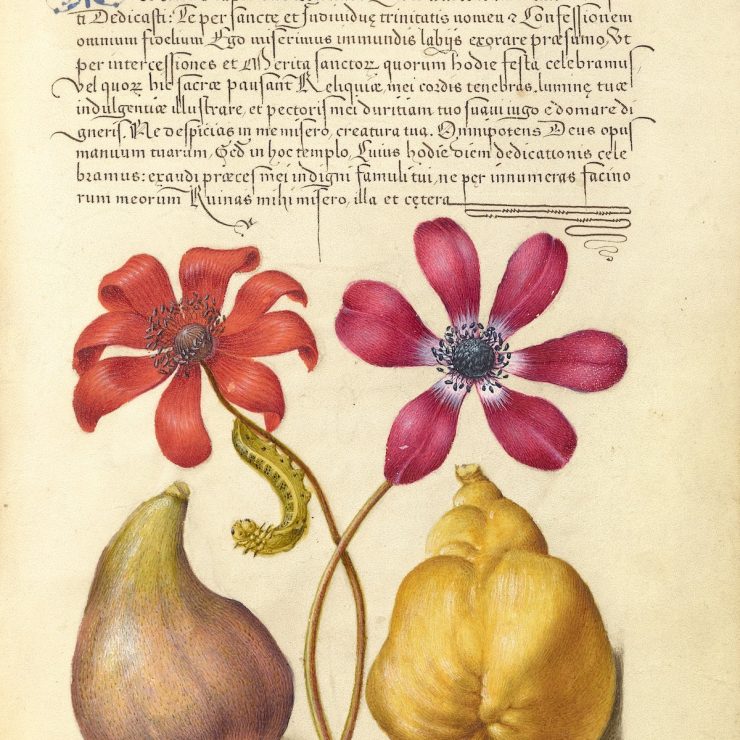 ti Dedicasti: Te per sancte et Individuę trinitatis nomen & Confessionem
omnium fidelium Ego miserimus immundis labijs exorare præsamo, Vt
per intercessiones et Merita sanctorꝝ quorum hodie festa celebramus
vel quorꝝ hic sacræ pausant Reliquiæ, mei cordis tenebras, luminę tuæ
indulgentiæ illustrare, et pectoris mei duritiam tuo suaui iugo edomare di
gneris. Ne despicias in me misero, creatura tua. Omnipotens Deus opus
manuum tuarum, Sed in hoc templo, Cuius hodie diem dedicationis cele
bramus: exaudi præces mei indigni famuli tui, ne per innumeras facino
rum meorum Ruinas mihi misero, illa et cętera